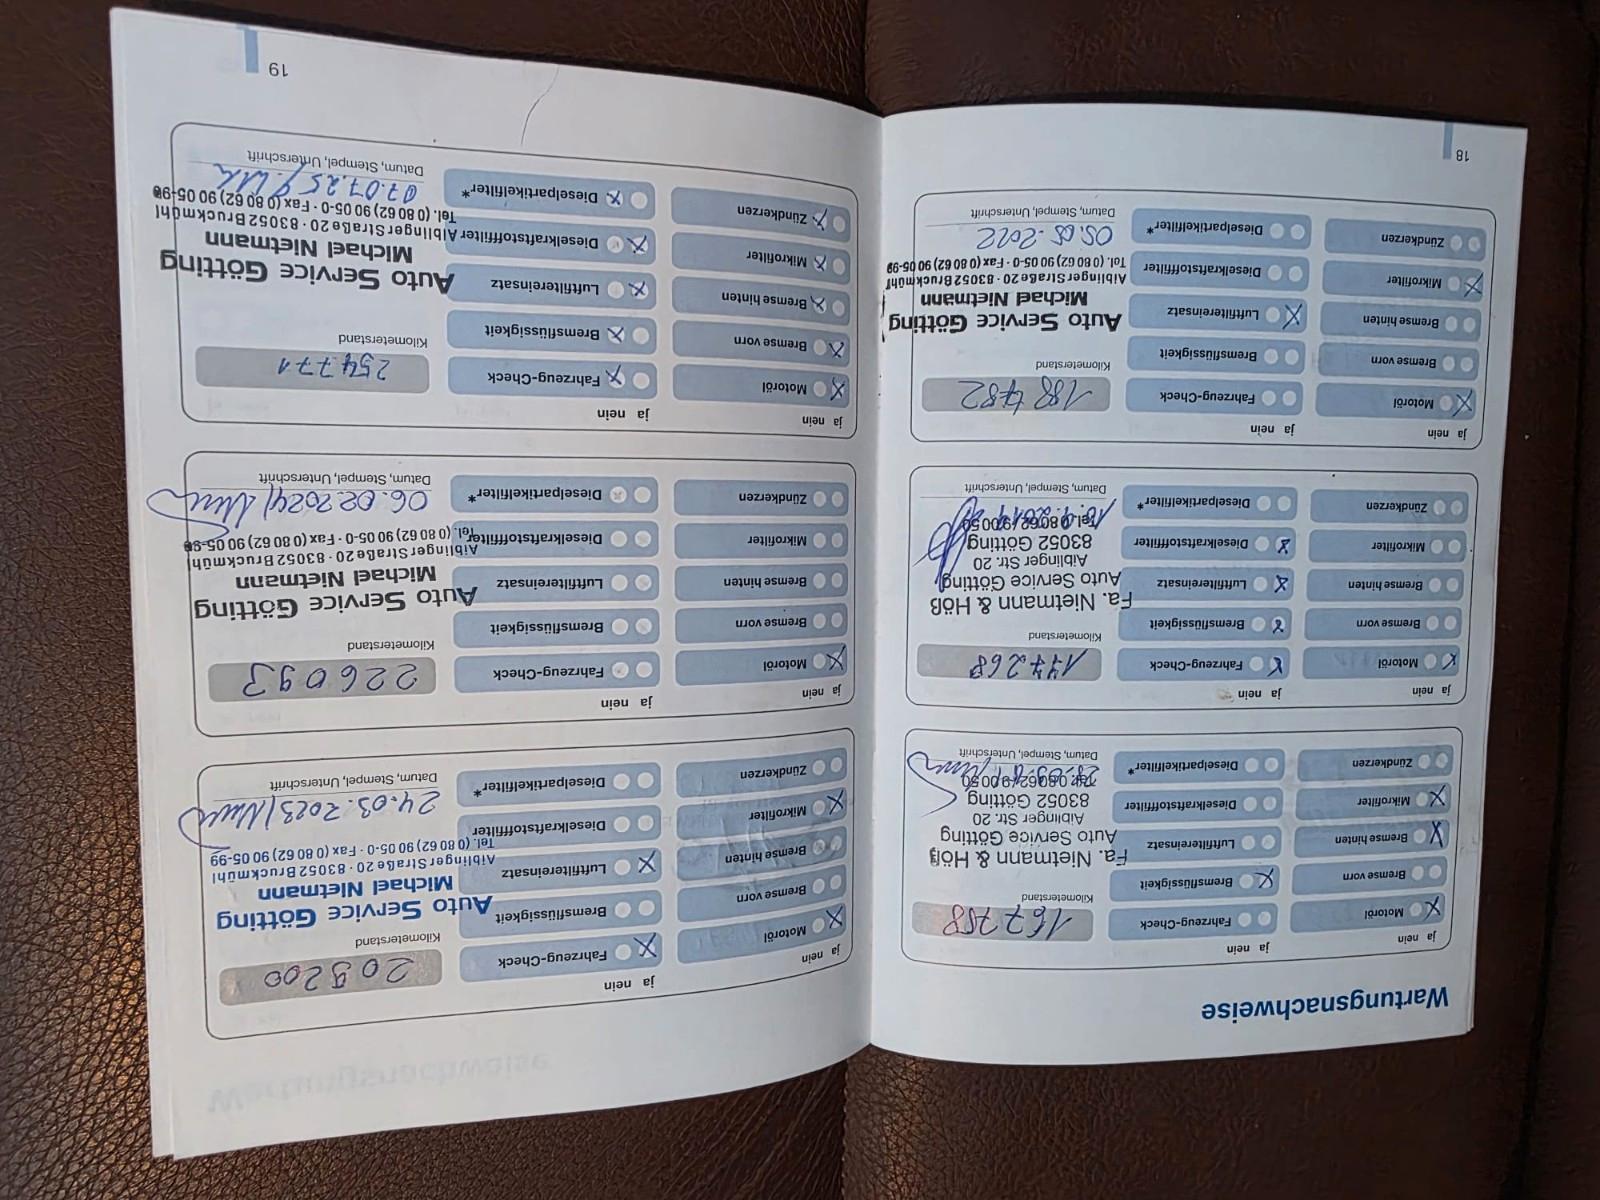 Wartungsnachweise
ja nein
Motoröl
Bremse vorn
Bremse hinten
Mikrofilter
Zündkerzen
ja nein
Fahrzeug-Check
Bremsflüssigkeit
Luftfiltereinsatz
Dieselkraftstofffilter
Dieselpartikelfilter*
Kilometerstand
Fa. Nietmann & Höß
Auto Service Götting
Aiblinger Str. 20
83052 Götting
Tel. 08062/90050
Datum, Stempel, Unterschrift
ja nein
Motoröl
Bremse vorn
Bremse hinten
Mikrofilter
Zündkerzen
ja nein
Fahrzeug-Check
Bremsflüssigkeit
Luftfiltereinsatz
Dieselkraftstofffilter
Dieselpartikelfilter*
177268
Kilometerstand
Fa. Nietmann & Höß
Auto Service Götting
Aiblinger Str. 20
83052 Götting
Tel. 08062/90050
Datum, Stempel, Unterschrift
ja nein
Motoröl
Bremse vorn
Bremse hinten
Mikrofilter
Zündkerzen
ja nein
Fahrzeug-Check
Bremsflüssigkeit
Luftfiltereinsatz
Dieselkraftstofffilter
Dieselpartikelfilter*
188782
Kilometerstand
Auto Service Götting
Michael Nietmann
Aiblinger Straße 20 · 83052 Bruckmühl
Tel. (0 80 62) 90 05-0 · Fax (0 80 62) 90 05-99
05.05.2022
Datum, Stempel, Unterschrift
18
ja nein
Motoröl
Bremse vorn
Bremse hinten
Mikrofilter
Zündkerzen
ja nein
Fahrzeug-Check
Bremsflüssigkeit
Luftfiltereinsatz
Dieselkraftstofffilter
Dieselpartikelfilter*
209200
Kilometerstand
Auto Service Götting
Michael Nietmann
Aiblinger Straße 20 · 83052 Bruckmühl
Tel. (0 80 62) 90 05-0 · Fax (0 80 62) 90 05-99
24.03.2023
Datum, Stempel, Unterschrift
ja nein
Motoröl
Bremse vorn
Bremse hinten
Mikrofilter
Zündkerzen
ja nein
Fahrzeug-Check
Bremsflüssigkeit
Luftfiltereinsatz
Dieselkraftstofffilter
Dieselpartikelfilter*
226093
Kilometerstand
Auto Service Götting
Michael Nietmann
Aiblinger Straße 20 · 83052 Bruckmühl
Tel. (0 80 62) 90 05-0 · Fax (0 80 62) 90 05-99
06.02.2024
Datum, Stempel, Unterschrift
ja nein
Motoröl
Bremse vorn
Bremse hinten
Mikrofilter
Zündkerzen
ja nein
Fahrzeug-Check
Bremsflüssigkeit
Luftfiltereinsatz
Dieselkraftstofffilter
Dieselpartikelfilter*
254771
Kilometerstand
Auto Service Götting
Michael Nietmann
Aiblinger Straße 20 · 83052 Bruckmühl
Tel. (0 80 62) 90 05-0 · Fax (0 80 62) 90 05-99
07.07.25
Datum, Stempel, Unterschrift
19